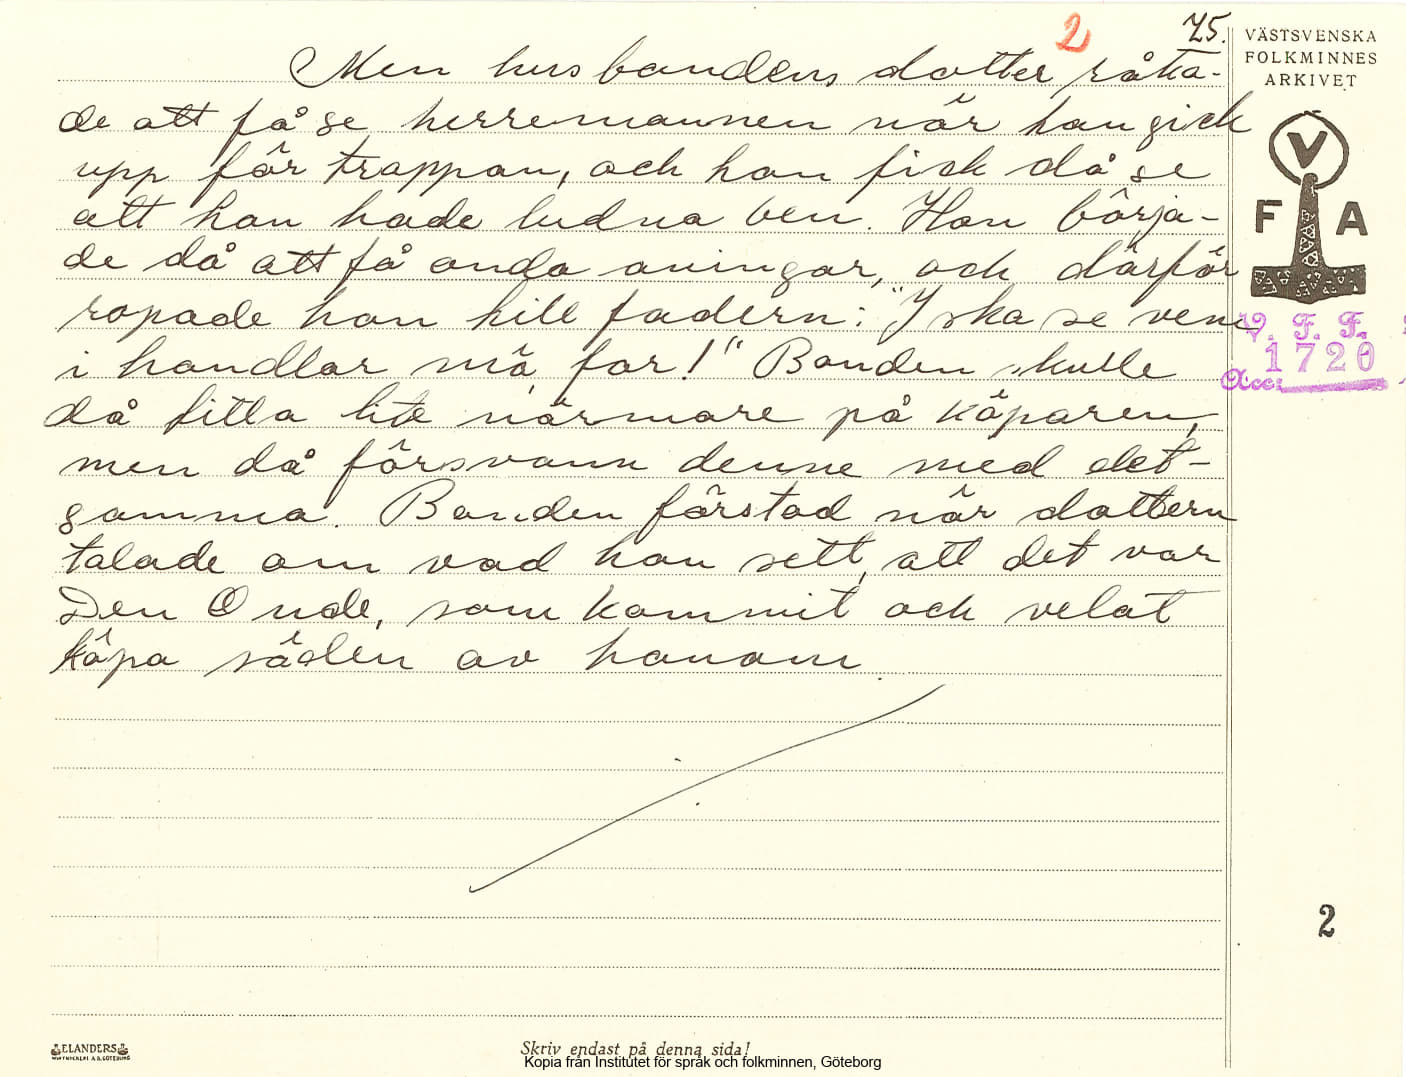 2
75.
VÄSTSVENSKA
FOLKMINNES
ARKIVET
Men husbondens dotter råka-
de att få se herremannen när han gick
upp för trappan, och hon fick då se
att han hade ludna ben. Hon börja-
de då att få onda aningar, och därför
ropade hon till fadern: "I ska se vem
i handlar mä, far!" Bonden skulle
då titta lite närmare på köparen,
men då försvann denne med det-
samma. Bonden förstod när dottern
talade om vad hon sett, att det var
Den Onde, som kommit och velat
köpa säden av honom.
V
F A
V. F. F.
1720
Acc:
2
ELANDERS
Skriv endast på denna sida!
Kopia från Institutet för språk och folkminnen, Göteborg